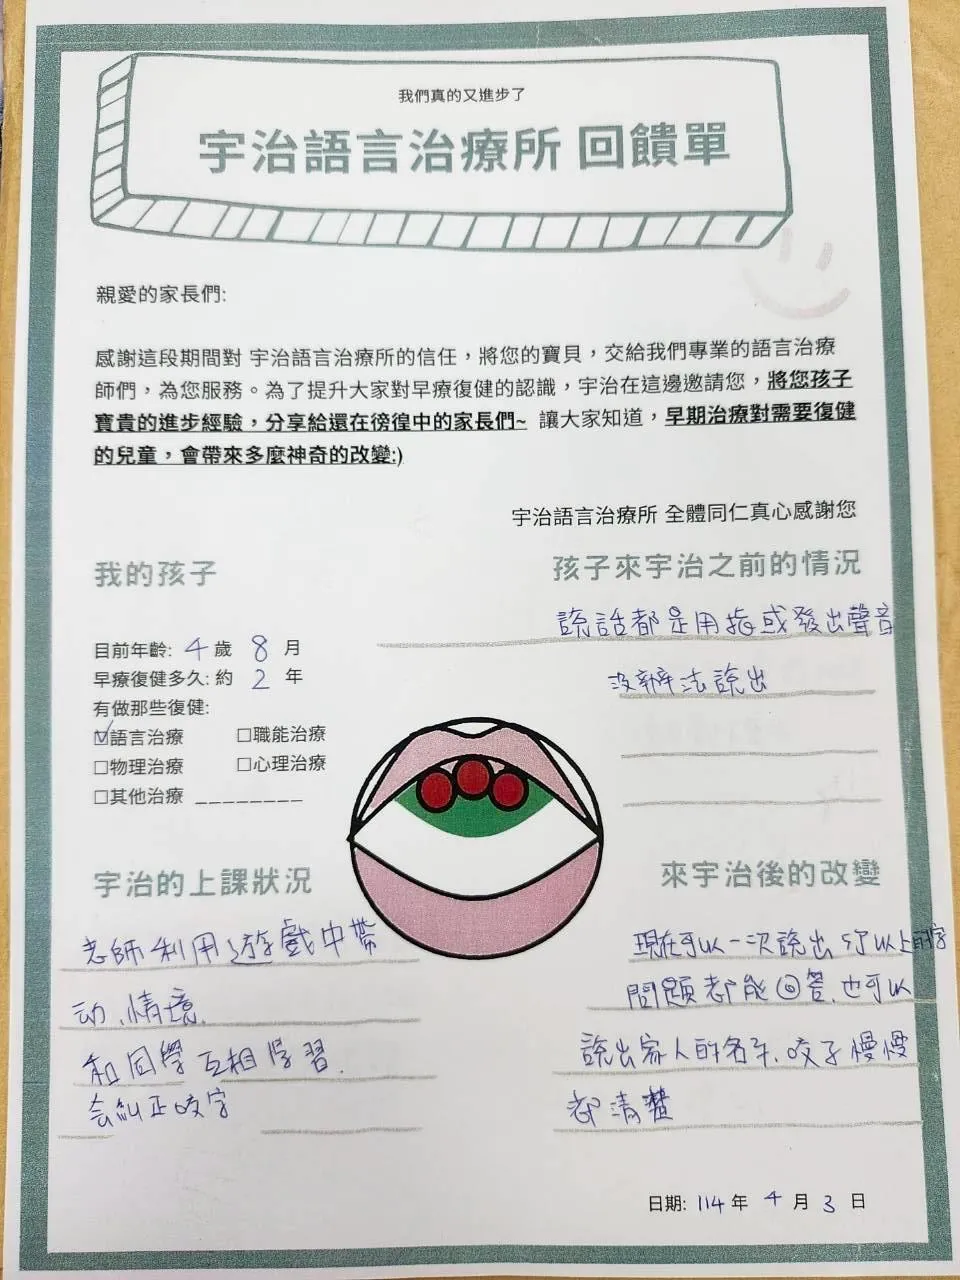 我們真的又進步了
宇治語言治療所 回饋單
親愛的家長們:
感謝這段期間對 宇治語言治療所的信任，將您的寶貝，交給我們專業的語言治療
師們，為您服務。為了提升大家對早療復健的認識，宇治在這邊邀請您，將您孩子
寶貴的進步經驗，分享給還在徬徨中的家長們~ 讓大家知道，早期治療對需要復健
的兒童，會帶來多麼神奇的改變:)
宇治語言治療所 全體同仁真心感謝您
我的孩子
目前年齡: 4 歲 8 月
早療復健多久: 約 2 年
有做那些復健:
☑語言治療 □職能治療
□物理治療 □心理治療
□其他治療 ________
孩子來宇治之前的情況
說話都是用指或發出聲音
沒辦法說出
宇治的上課狀況
老師利用遊戲中帶
动、情境.
和同學互相学習.
会糾正咬字
來宇治後的改變
現在可以一次說出 5字以上的字
問題都能回答.也可以
說出家人的名字.咬字慢慢
都清楚
日期: 114 年 4 月 3 日